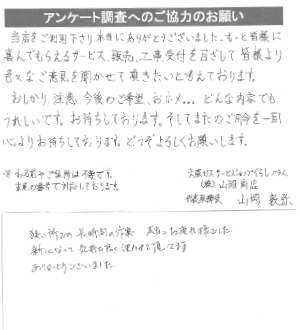 アンケート調査へのご協力のお願い
当店をご利用下さり本当にありがとうございました。もっと皆様に
喜んでもらえるサービス、販売、工事受付を目ざして皆様より
色々なご意見を聞かせて頂きたいと考えております。
おしかり、注意、今後のご希望、おホメ...どんな内容でも
うれしいです。お待ちしております。そしてまたのご用命を一同
心よりお待ちしております。どうぞよろしくお願いします。
※お名前やご住所は不要です。
大阪ガスサービスショップ
(株)山岡商店
山岡
狭い所での長時間の作業
新しくなって気持ち良く使わせて頂いてます
ありがとうございました。